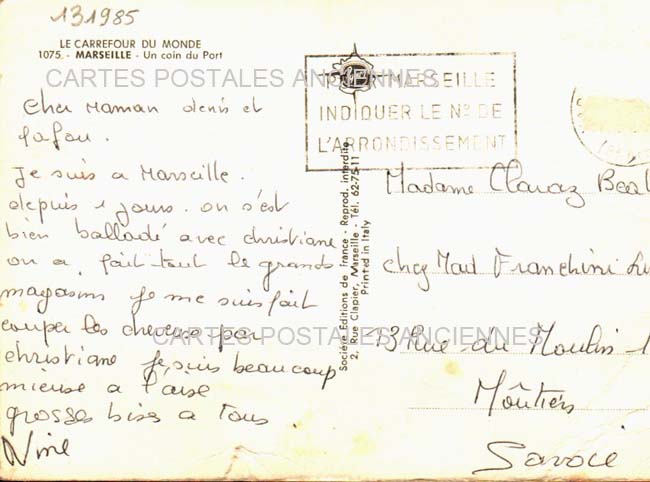 131985
LE CARREFOUR DU MONDE
1075 - MARSEILLE - Un coin du Port
CARTES POSTALES ANCIENNES
POUR MARSEILLE
INDIQUER LE No DE
L'ARRONDISSEMENT
cher maman denis et
fafou.
Je suis a Marseille.
depuis 1 jours. on s'est
bien balladé avec christiane
on a fait tout le grands
magasins je me suis fait
couper les cheveux par
christiane je suis beaucoup
mieuse a l'aise
grosses bises a tous
Nine
Société Editions de France - Reprod. interdite
2, Rue Clapier, Marseille - Tél. 62-75-11
Printed in Italy
Madame Claraz Beat
chez Mad Franchini Lu
CARTES POSTALES ANCIENNES
13 Rue du Moulin
Moûtiers
Savoie